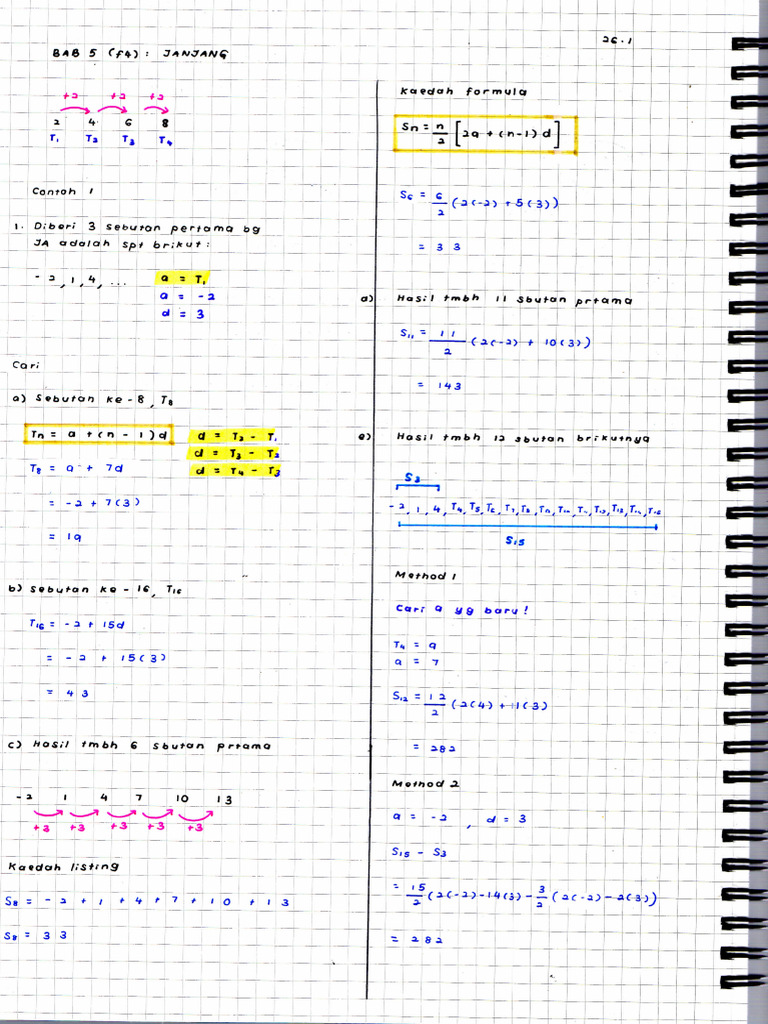 26.1
BAB 5 (f4) : JANJANG
+2 +2 +2
2 4 6 8
T₁ T₂ T₃ T₄
Contoh 1
1. Diberi 3 sebutan pertama bg
JA adalah spt brikut :
-2, 1, 4, ...
a = T₁
a = -2
d = 3
Cari
a) Sebutan ke-8, T₈
Tn = a + (n - 1)d
d = T₂ - T₁
d = T₃ - T₂
d = T₄ - T₃
T₈ = a + 7d
= -2 + 7(3)
= 19
b) Sebutan ke - 16, T₁₆
T₁₆ = -2 + 15d
= -2 + 15(3)
= 43
c) Hasil tmbh 6 sbutan prtama
-2 1 4 7 10 13
+3 +3 +3 +3 +3
Kaedah listing
S₈ = -2 + 1 + 4 + 7 + 10 + 13
S₈ = 33
Kaedah formula
Sn = n/2 [2a + (n-1)d]
S₆ = 6/2 (2(-2) + 5(3))
= 33
d) Hasil tmbh 11 sbutan prtama
S₁₁ = 11/2 (2(-2) + 10(3))
= 143
e) Hasil tmbh 12 sbutan brikutnya
S₃
-2, 1, 4, T₄, T₅, T₆, T₇, T₈,
S₁₅
Method 1
Cari a yg baru!
T₄ = a
a = 7
S₁₂ = 12/2 (2(4) + 11(3)
= 282
Method 2
a = -2 , d = 3
S₁₅ - S₃
= 15/2 (2(-2)-14(3) - 3/2 (2(-2) - 2(3))
= 282